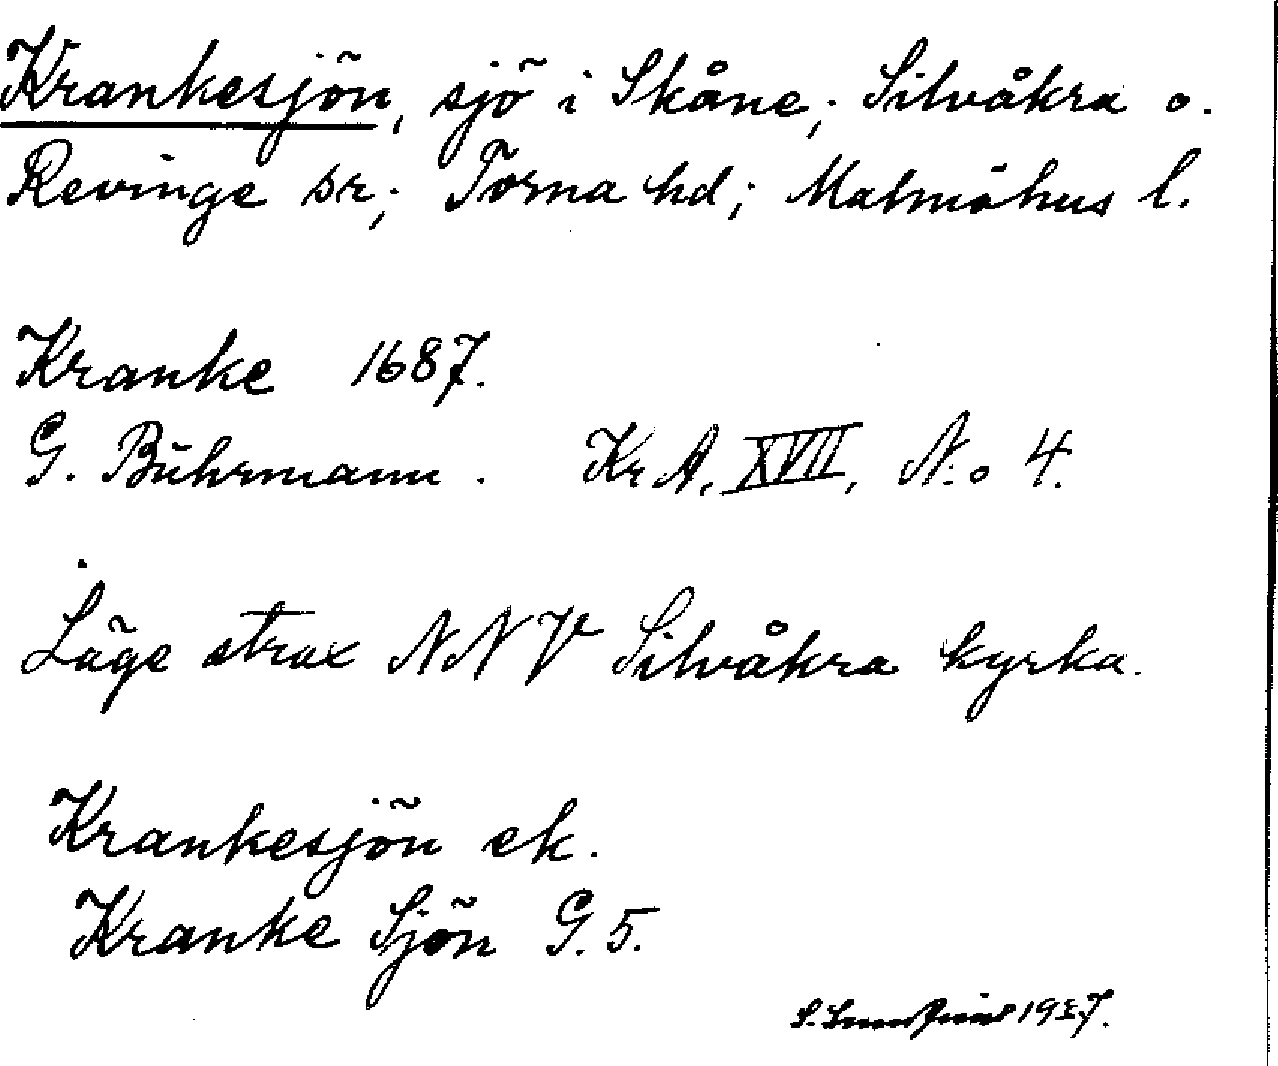 Krankesjön, sjö i Skåne; Silvåkra o.
Revinge sr; Torna hd; Malmöhus l.
Kranke 1687.
G. Bührmann. Kr A. XVII, N:o 4.
Läge strax NNV Silvåkra kyrka.
Krankesjön ek.
Kranke Sjön G. 5.
S.